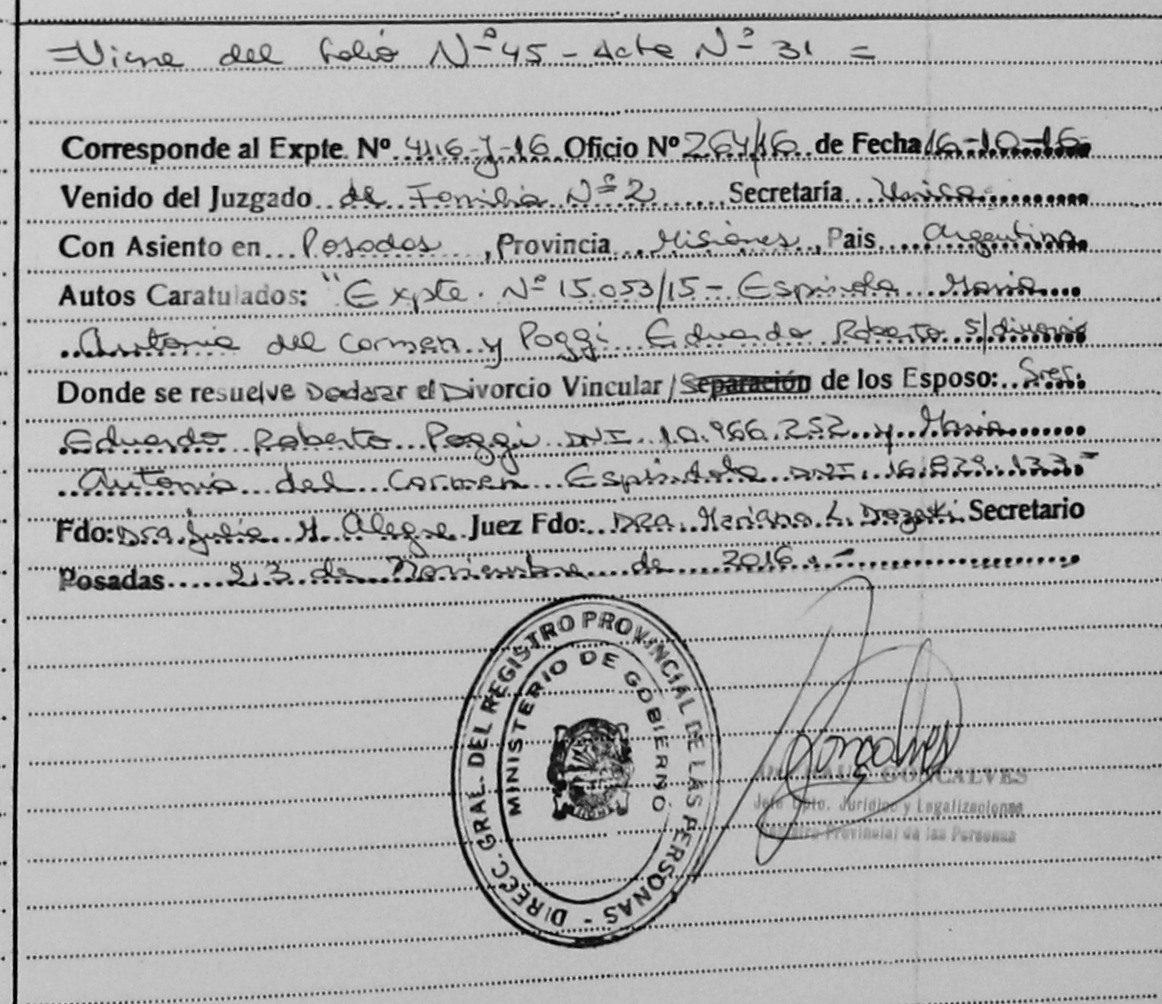 =Viene del folio Nº 45 - Acta Nº 31 =
Corresponde al Expte. Nº 4116-J-16 Oficio Nº 264/16 de Fecha 16-10-16
Venido del Juzgado de Familia Nº 2 Secretaría Unica
Con Asiento en Posadas, Provincia Misiones, Pais Argentina
Autos Caratulados: "Expte. Nº 15.053/15 - Espindola Maria
Antonia del Carmen y Poggi Eduardo Roberto s/divorcio
Donde se resuelve Declarar el Divorcio Vincular/Separación de los Esposo: Sres.
Eduardo Roberto Poggi DNI. 10.966.252 y Maria
Antonia del Carmen Espindola DNI. 16.829.133-
Fdo: Dra. Julia M. Alegre Juez Fdo: DRA. Mariana L. Secretario
Posadas 23 de Noviembre de 2016.-
DIRECC. GRAL. DEL REGISTRO PROVINCIAL DE LAS PERSONAS -
MINISTERIO DE GOBIERNO
Goncalves
GONCALVES
Jefe Dpto. Jurídico y Legalizaciones
Registro Provincial de las Personas